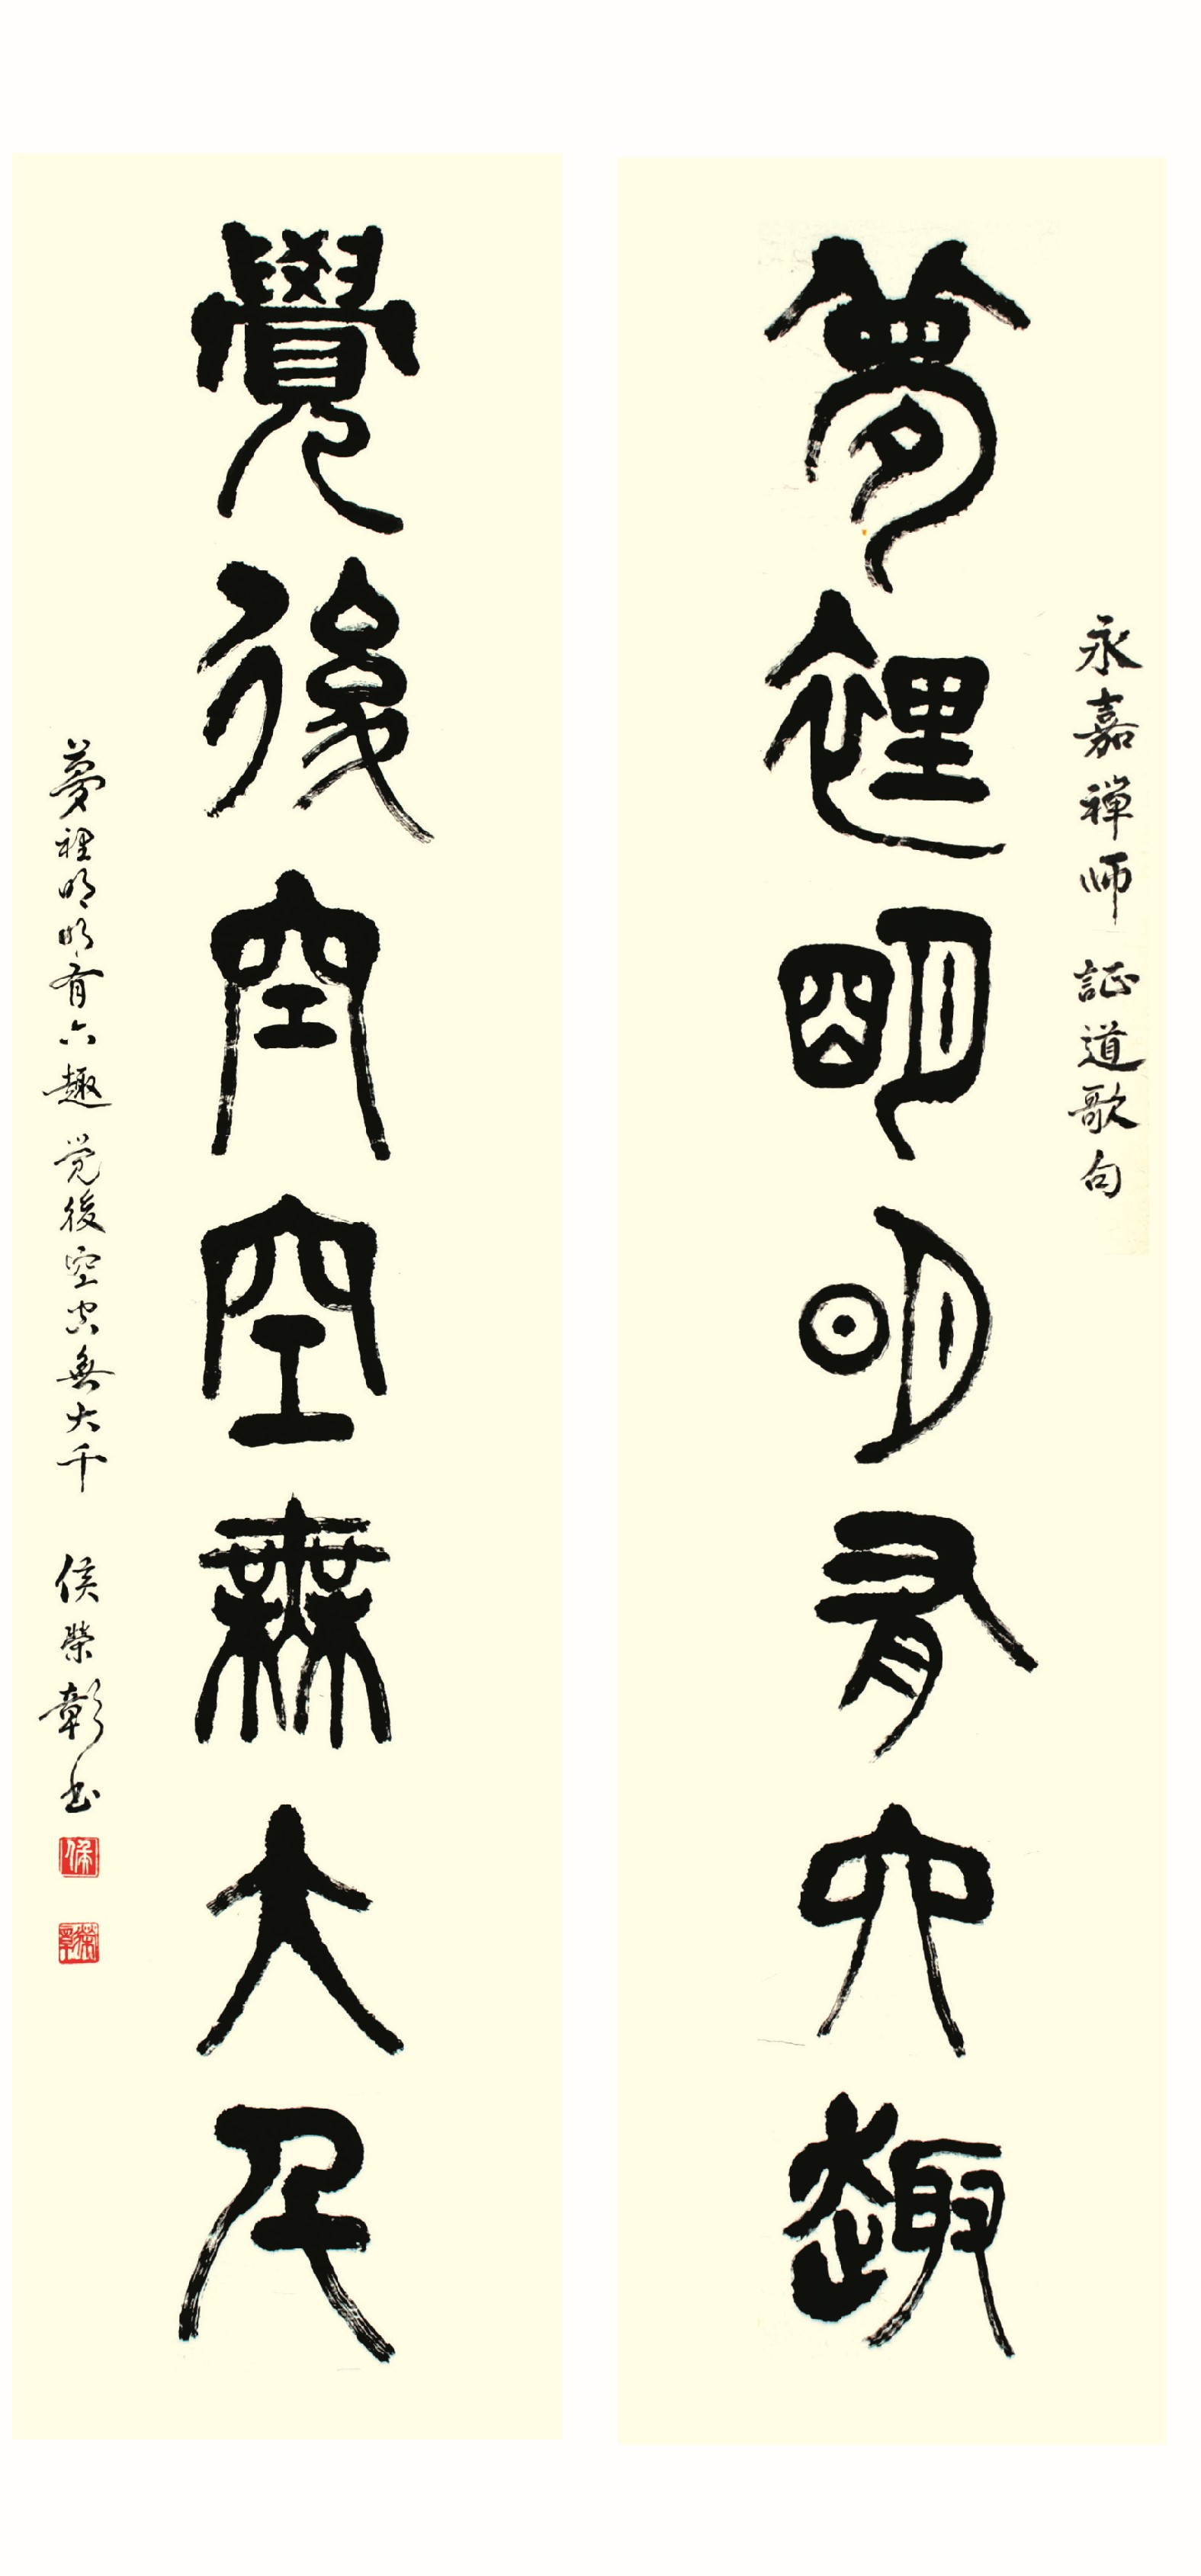 永嘉禅师 証道歌句
夢裡明明有六趣
覺後空空無大千
夢裡明明有六趣 觉後空空無大千 侯榮彰书
侯
榮彰